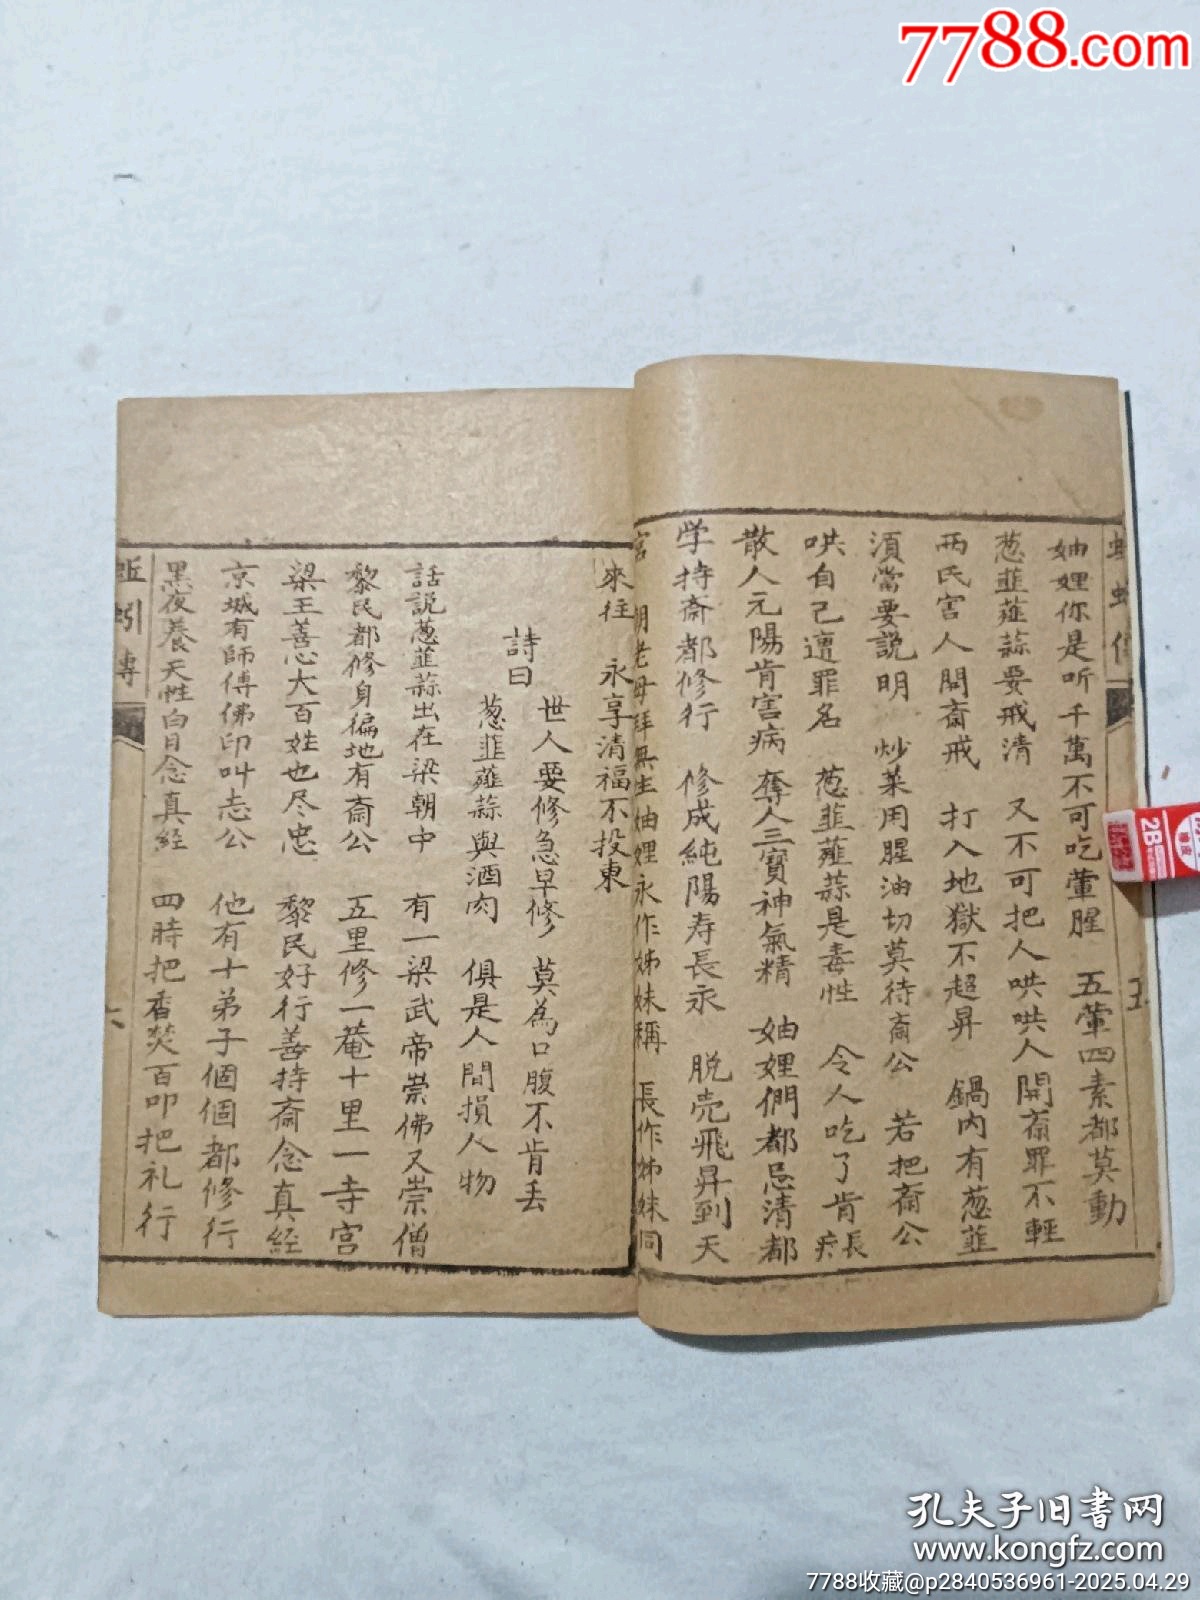 7788.com
妯娌你是听千萬不可吃葷腥 五葷四素都莫動
葱韮薤蒜要戒清 又不可把人哄哄人開齋罪不輕
兩氏害人開齋戒 打入地獄不超昇 鍋內有葱韮
須當要説明 炒菜用腥油切莫待齋公 若把齋公
哄自己遭罪名 葱韮薤蒜是毒性 令人吃了肯長疾
散人元陽肯害病 奪人三寳神氣精 妯娌們都忌清都
学持齋都修行 修成純陽寿長永 脱壳飛昇到天
宮 朝老母拜無生妯娌永作姊妹稱 長作姊妹同
五
2B
來往 永享清福不投東
詩曰
世人要修急早修 莫為口腹不肯丢
葱韮薤蒜與酒肉 俱是人間損人物
話説葱韮蒜出在梁朝中 有一梁武帝崇佛又崇僧
黎民都修身徧地有齋公 五里修一菴十里一寺宮
梁王善心大百姓也尽忠 黎民好行善持齋念真經
京城有師傅佛印叫志公 他有十弟子個個都修行
黑夜養天性白日念真経 四時把香焚百叩把礼行
蚯蚓傳
六
孔夫子旧书网
www.kongfz.com
7788收藏@p2840536961-2025.04.29